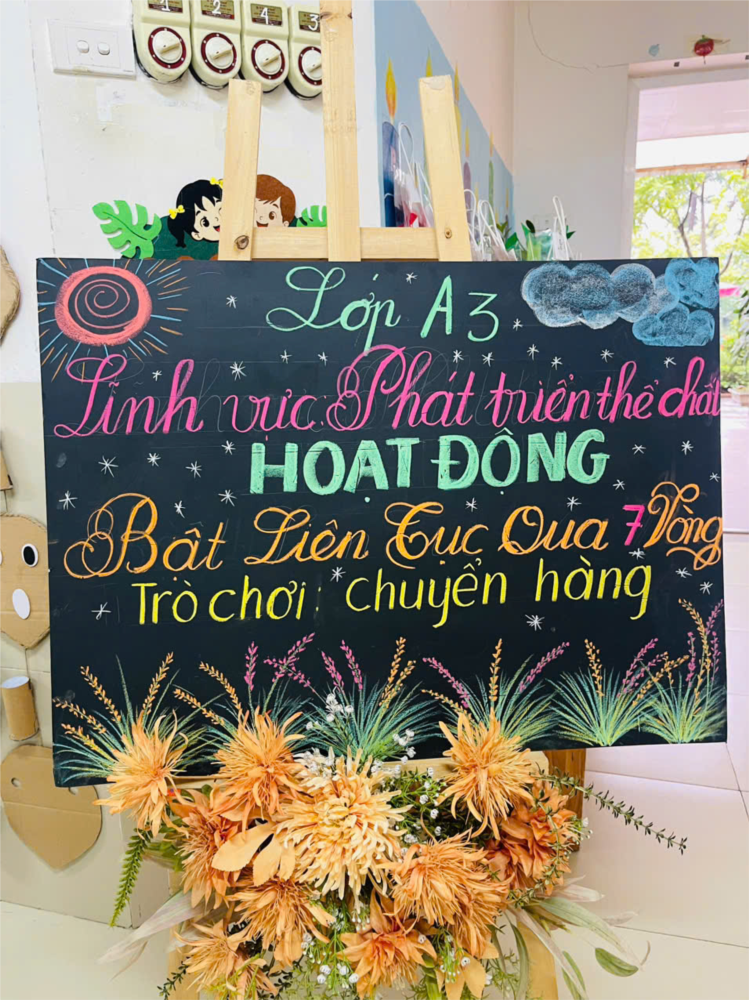 1 2 4 3
Lớp A3
Lĩnh vực: Phát triển thể chất
HOẠT ĐỘNG
Bật Liên Tục Qua 7 Vòng
Trò chơi: chuyển hàng